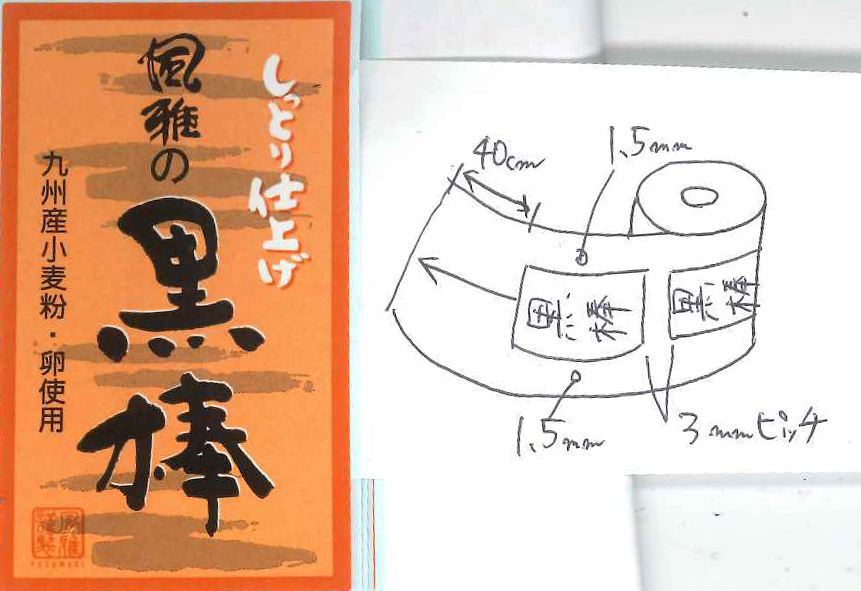 しっとり仕上げ
風雅の
黒棒
九州産小麦粉・卵使用
FUUGAMAKI
40cm
1.5mm
黒棒
黒棒
1.5mm
3mmピッチ